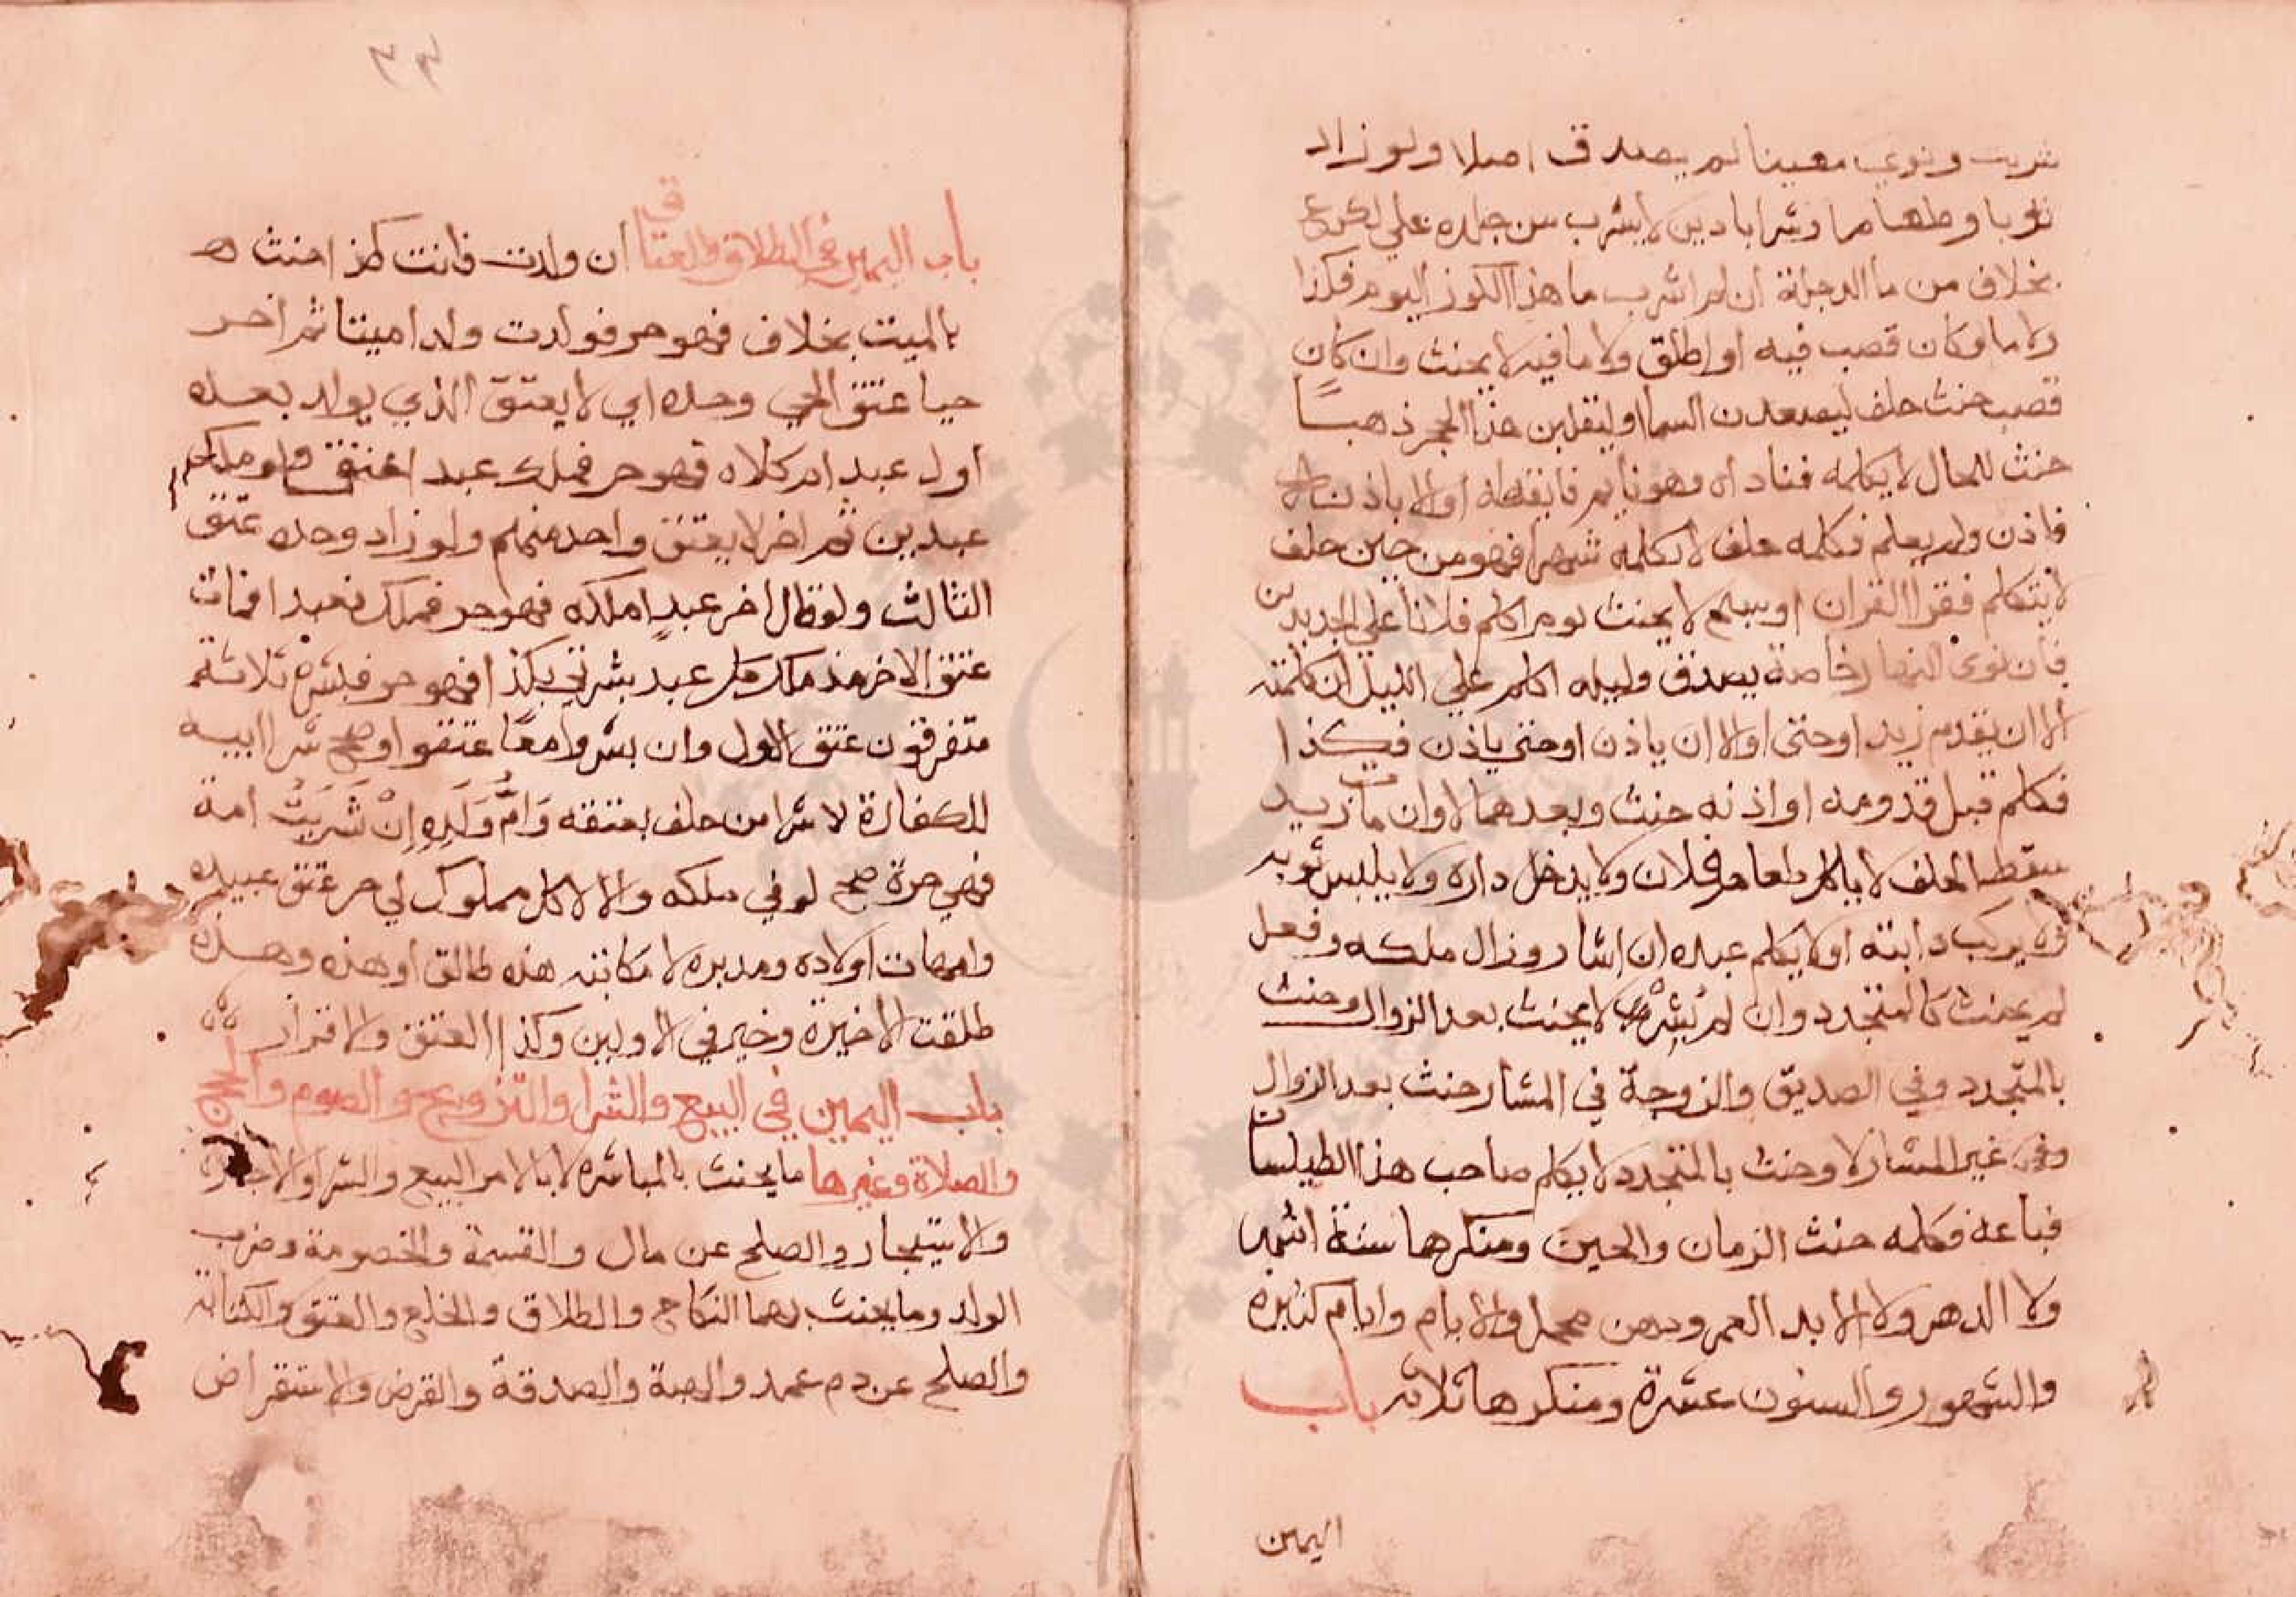 شربت ونوي معينا لم يصدق اصلا ولو زاد
ثوبا او طعاما او شرابا دين لا يشرب من دجلة علي الكرع
بخلاف من ما الدجلة ان لم اشرب ما هذا الكوز اليوم فكذا
ولا ما او كان فصب فيه او اطلق ولا ما فيه لا يحنث وان كان
فصب حنث حلف ليصعدن السما او ليقلبن هذا الحجر ذهبا
حنث للحال لا يكلمه فناداه وهو نايم فايقظه او الا باذنه
فاذن ولم يعلم فكلمه حلف لا يكلمه شهرا فهو من حين حلف
لا يتكلم فقرا القران او سبح لا يحنث يوم اكلم فلانا علي الجديدين
فان نوي النهار خاصة يصدق وليله اكلم علي الليل ان كلمته
الا ان يقدم زيد او حتي او الا ان ياذن او حتي ياذن فكذا
فكلم قبل قدومه او اذنه حنث وبعدهما لا وان مات زيد
سقط الحلف لا ياكل طعام فلان ولا يدخل داره ولا يلبس ثوبه
ولا يركب دابته او لا يكلم عبده ان اشار وزال ملكه وفعل
لم يحنث كالمتجدد وان لم يشر لا يحنث بعد الزوال وحنث
بالمتجدد وفي الصديق والزوجة في المشار حنث بعد الزوال
وفي غير المشار لا وحنث بالمتجدد لا يكلم صاحب هذا الطيلسان
فباعه فكلمه حنث الزمان والحين ومنكرها ستة اشهر
ولا الدهر ولا الابد العمر ودهر مجمل والايام وايام كثيرة
والشهور والسنون عشرة ومنكرها ثلاثه باب
اليمين
٣٣
باب اليمين في الطلاق والعتاق ان ولدت فانت كذا حنث
بالميت بخلاف فهو حر فولدت ولدا ميتا ثم اخر
حيا عتق الحي وحده اي لا يعتق الذي يولد بعده
اول عبد املكه فهو حر فملك عبدا عتق ولو ملك
عبدين ثم اخر لا يعتق واحد منهم ولو زاد وحده عتق
الثالث ولو قال اخر عبد املكه فهو حر فملك فعبدا فمات
عتق الاخر مذ ملك كل عبد بشرني بكذا فهو حر فبشره ثلاثة
متفرقون عتق الاول وان بشروا معا عتقوا وصح شرا ابيه
للكفارة لا شرا من حلف بعتقه وَامُّ وَلَدِهِ اِنْ شَرَيْتُ امة
فهي حرة صح لو في ملكه والا لا كل مملوك لي حر عتق عبيده
وامهات اولاده ومدبره لا مكاتبه هذه طالق او هذه وهذه
طلقت الاخيرة وخير في الاولين وكذا العتق والاقرار
باب اليمين في البيع والشرا والتزويج والصوم والحج
والصلاة وغيرها ما يحنث بالمباشرة لا بالامر البيع والشرا والاجارة
والاستيجار والصلح عن مال والقسمة والخصومة وضرب
الولد وما يحنث بهما النكاح والطلاق والخلع والعتق والكتابة
والصلح عن دم عمد والهبة والصدقة والقرض والاستقراض